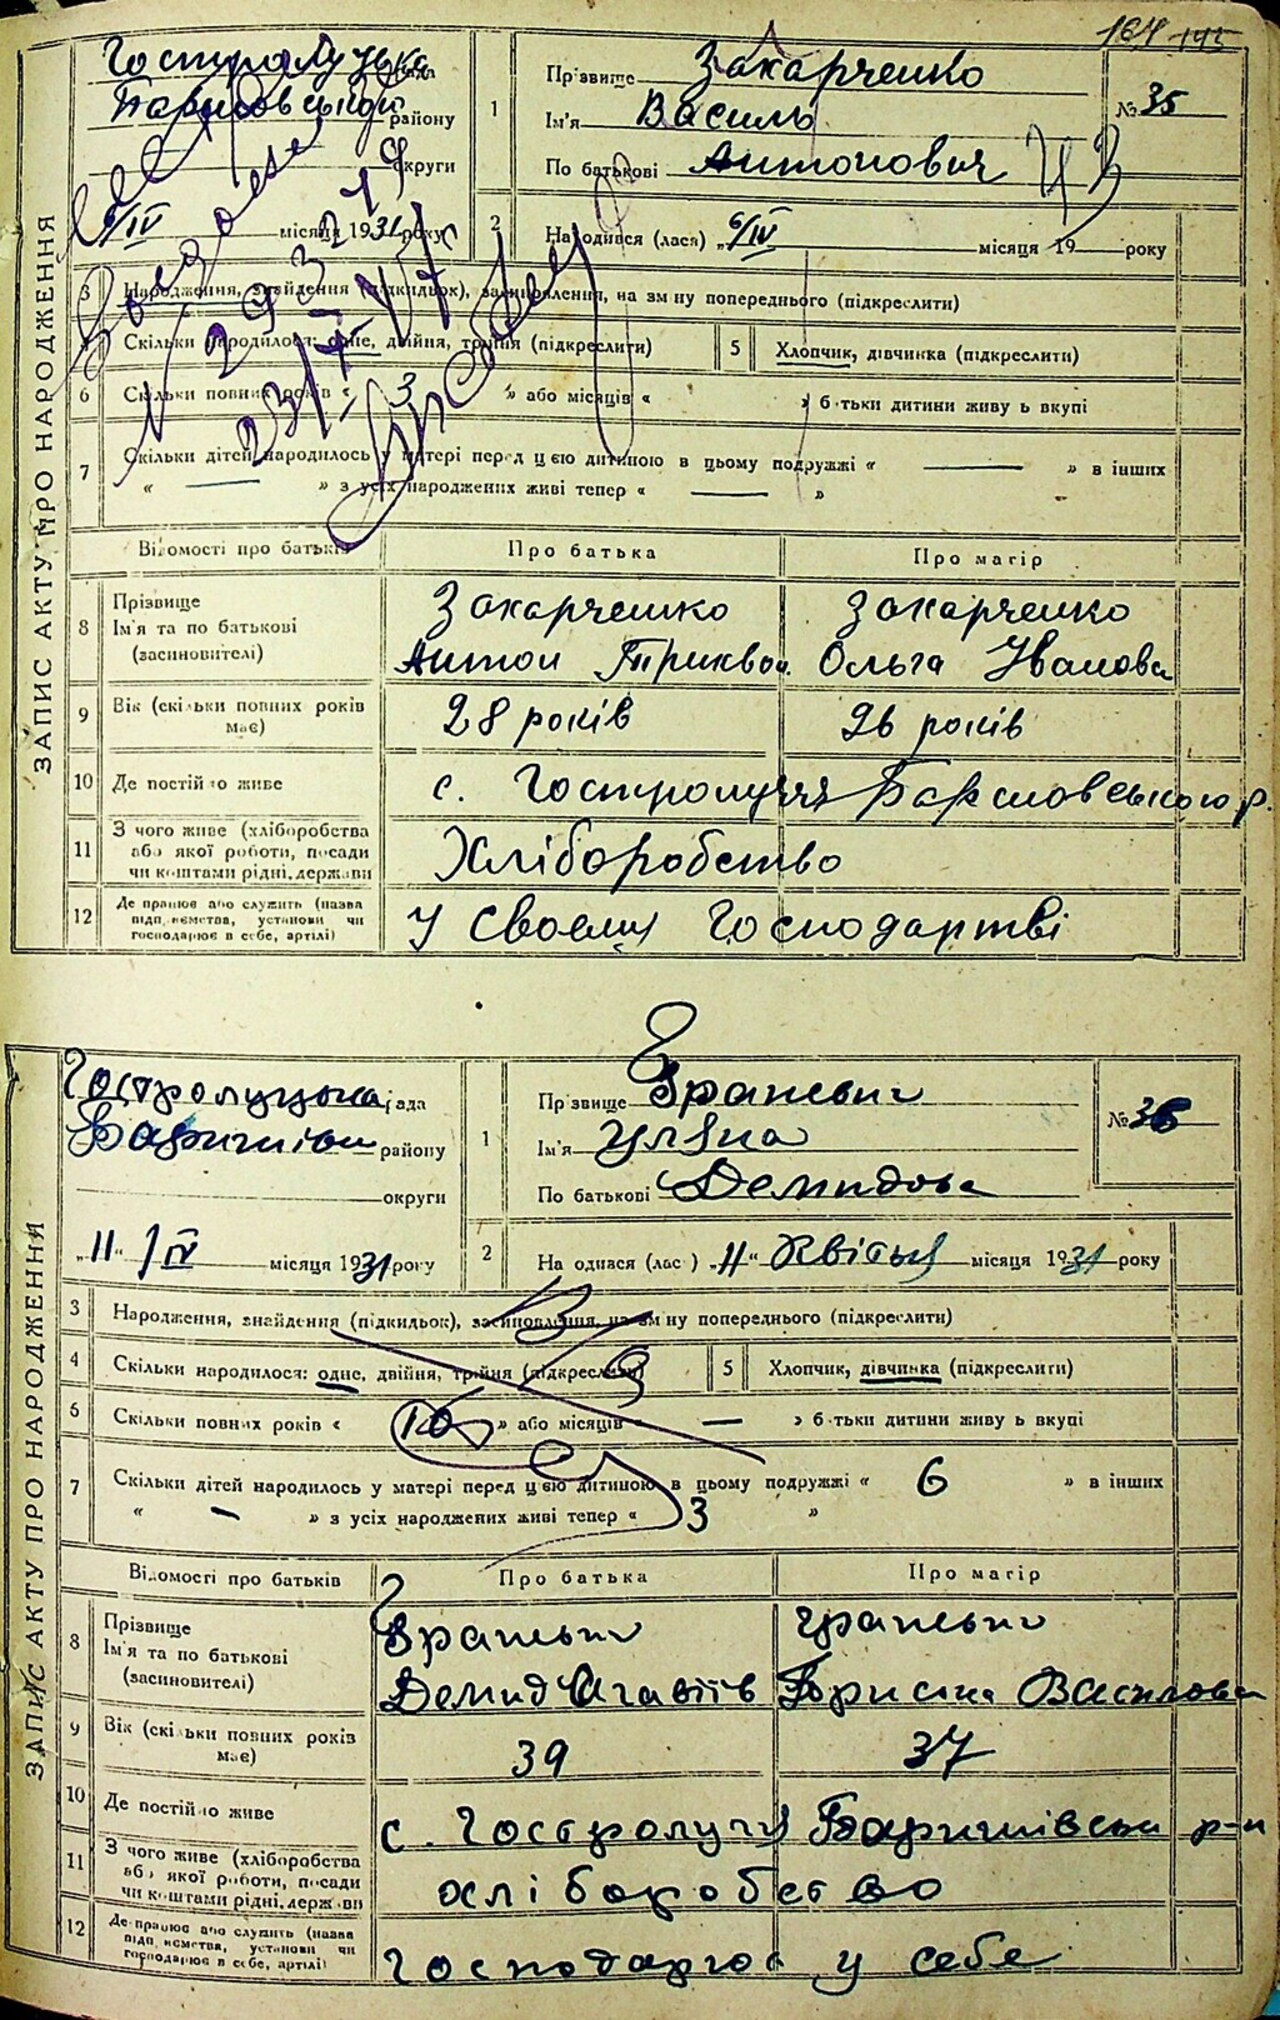 164
Гостролуцька рада
Баришовський району
округи
6/IV місяця 1931 року
1
Прізвище Захарченко
Ім'я Василь
По батькові Антонович
№ 35
2
Народився (лася) „6/IV місяця 19 року
ЗАПИС АКТУ ПРО НАРОДЖЕННЯ
3 Народження, знайдення (підкидьок), засиновлення, на зміну попереднього (підкреслити)
4 Скільки народилося: одне, двійня, трійня (підкреслити)
5 Хлопчик, дівчинка (підкреслити)
6 Скільки повних років « 3 » або місяців « » батьки дитини живуть вкупі
7 Скільки дітей народилось у матері перед цією дитиною в цьому подружжі « — » в інших
« — » з усіх народжених живі тепер « — »
Відомості про батьків Про батька Про матір
8 Прізвище Ім'я та по батькові (засиновителі)
Захарченко Захарченко
Антон Ольга Іванова
9 Вік (скільки повних років має) 28 років 26 років
10 Де постійно живе с. Гостролуччя Баришовського р.
11 З чого живе (хліборобства або якої роботи, посади чи коштами рідні, держави Хліборобство
12 Де працює або служить (назва підприємства, установи чи господарює в себе, артілі) У своєму господартві
Гостролуцька рада
Баришівськ району
округи
„11“ IV місяця 1931 року
1
Прізвище
Ім'я Уляна
По батькові Демидова
№ 36
2
Народився (лася) „11“ Квітня місяця 1931 року
ЗАПИС АКТУ ПРО НАРОДЖЕННЯ
3 Народження, знайдення (підкидьок), засиновлення, на зміну попереднього (підкреслити)
4 Скільки народилося: одне, двійня, трійня (підкреслити)
5 Хлопчик, дівчинка (підкреслити)
6 Скільки повних років « 10 » або місяців « — » батьки дитини живуть вкупі
7 Скільки дітей народилось у матері перед цією дитиною в цьому подружжі « 6 » в інших
« - » з усіх народжених живі тепер « 3 »
Відомості про батьків Про батька Про матір
8 Прізвище Ім'я та по батькові (засиновителі)
Демид Василова
9 Вік (скільки повних років має) 39 37
10 Де постійно живе с. Гостролуччя Баришівськ р-н
11 З чого живе (хліборобства або якої роботи, посади чи коштами рідні, держави хліборобство
12 Де працює або служить (назва підприємства, установи чи господарює в себе, артілі) господарює у себе